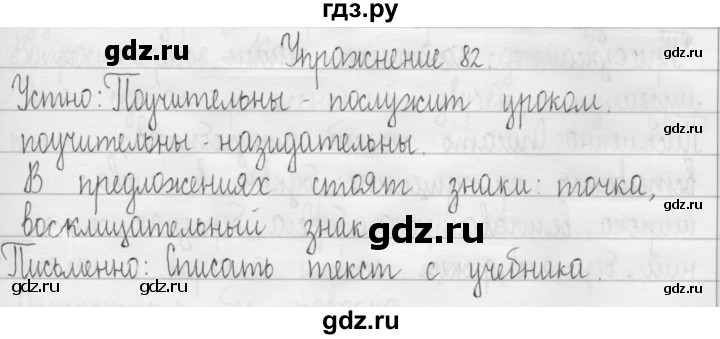 гдз.ру
Упражнение 82.
gdz.ru
gdz.ru
Устно: Поучительны - послужит уроком.
поучительны - назидательны.
В предложениях стоят знаки: точка,
восклицательный знак
gdz.ru
Письменно: Списать текст с учебника.
gdz.ru gdz.ru gdz.ru gdz.ru
gdz.ru